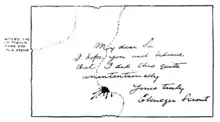 My dear Sir
I hope you will believe
that I did this quite
unintentionally
Yours truly
Ebenezer Prout